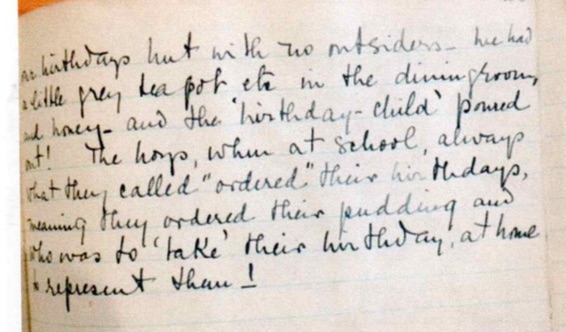 our birthdays but with no outsiders – we had
a little grey tea pot etc in the diningroom,
and honey – and the 'birthday-child' poured
out! The boys, when at school, always
what they called "ordered" their birthdays,
meaning they ordered their pudding and
who was to 'take' their birthday, at home
to represent them!